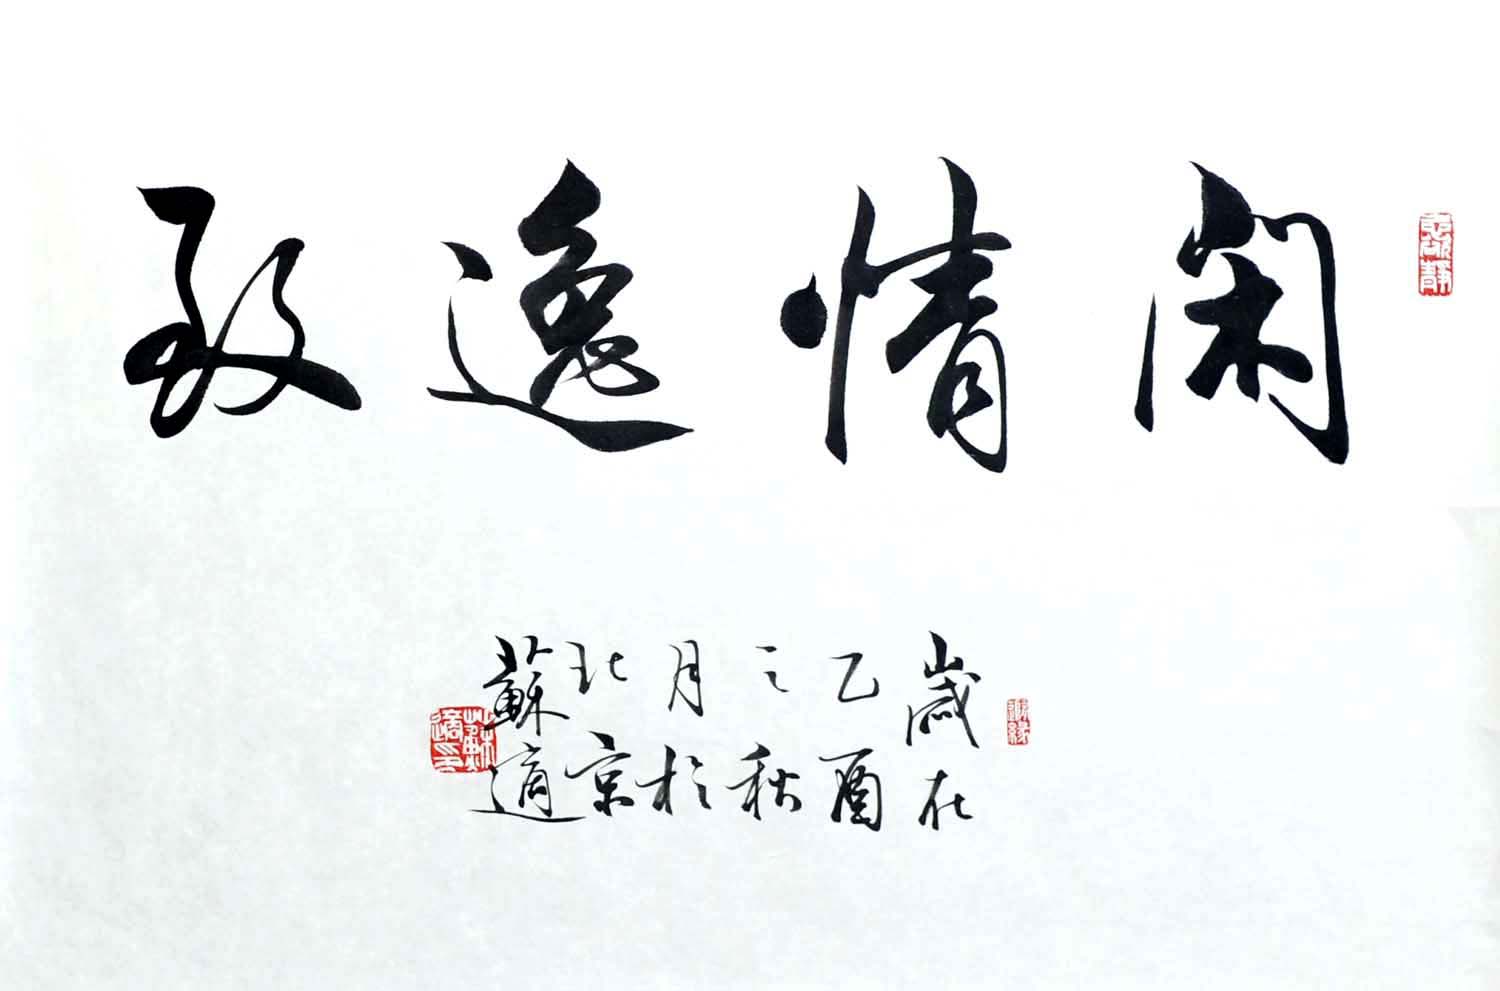 闲情逸致
歲在
乙酉
之秋
月於
北京
蘇適